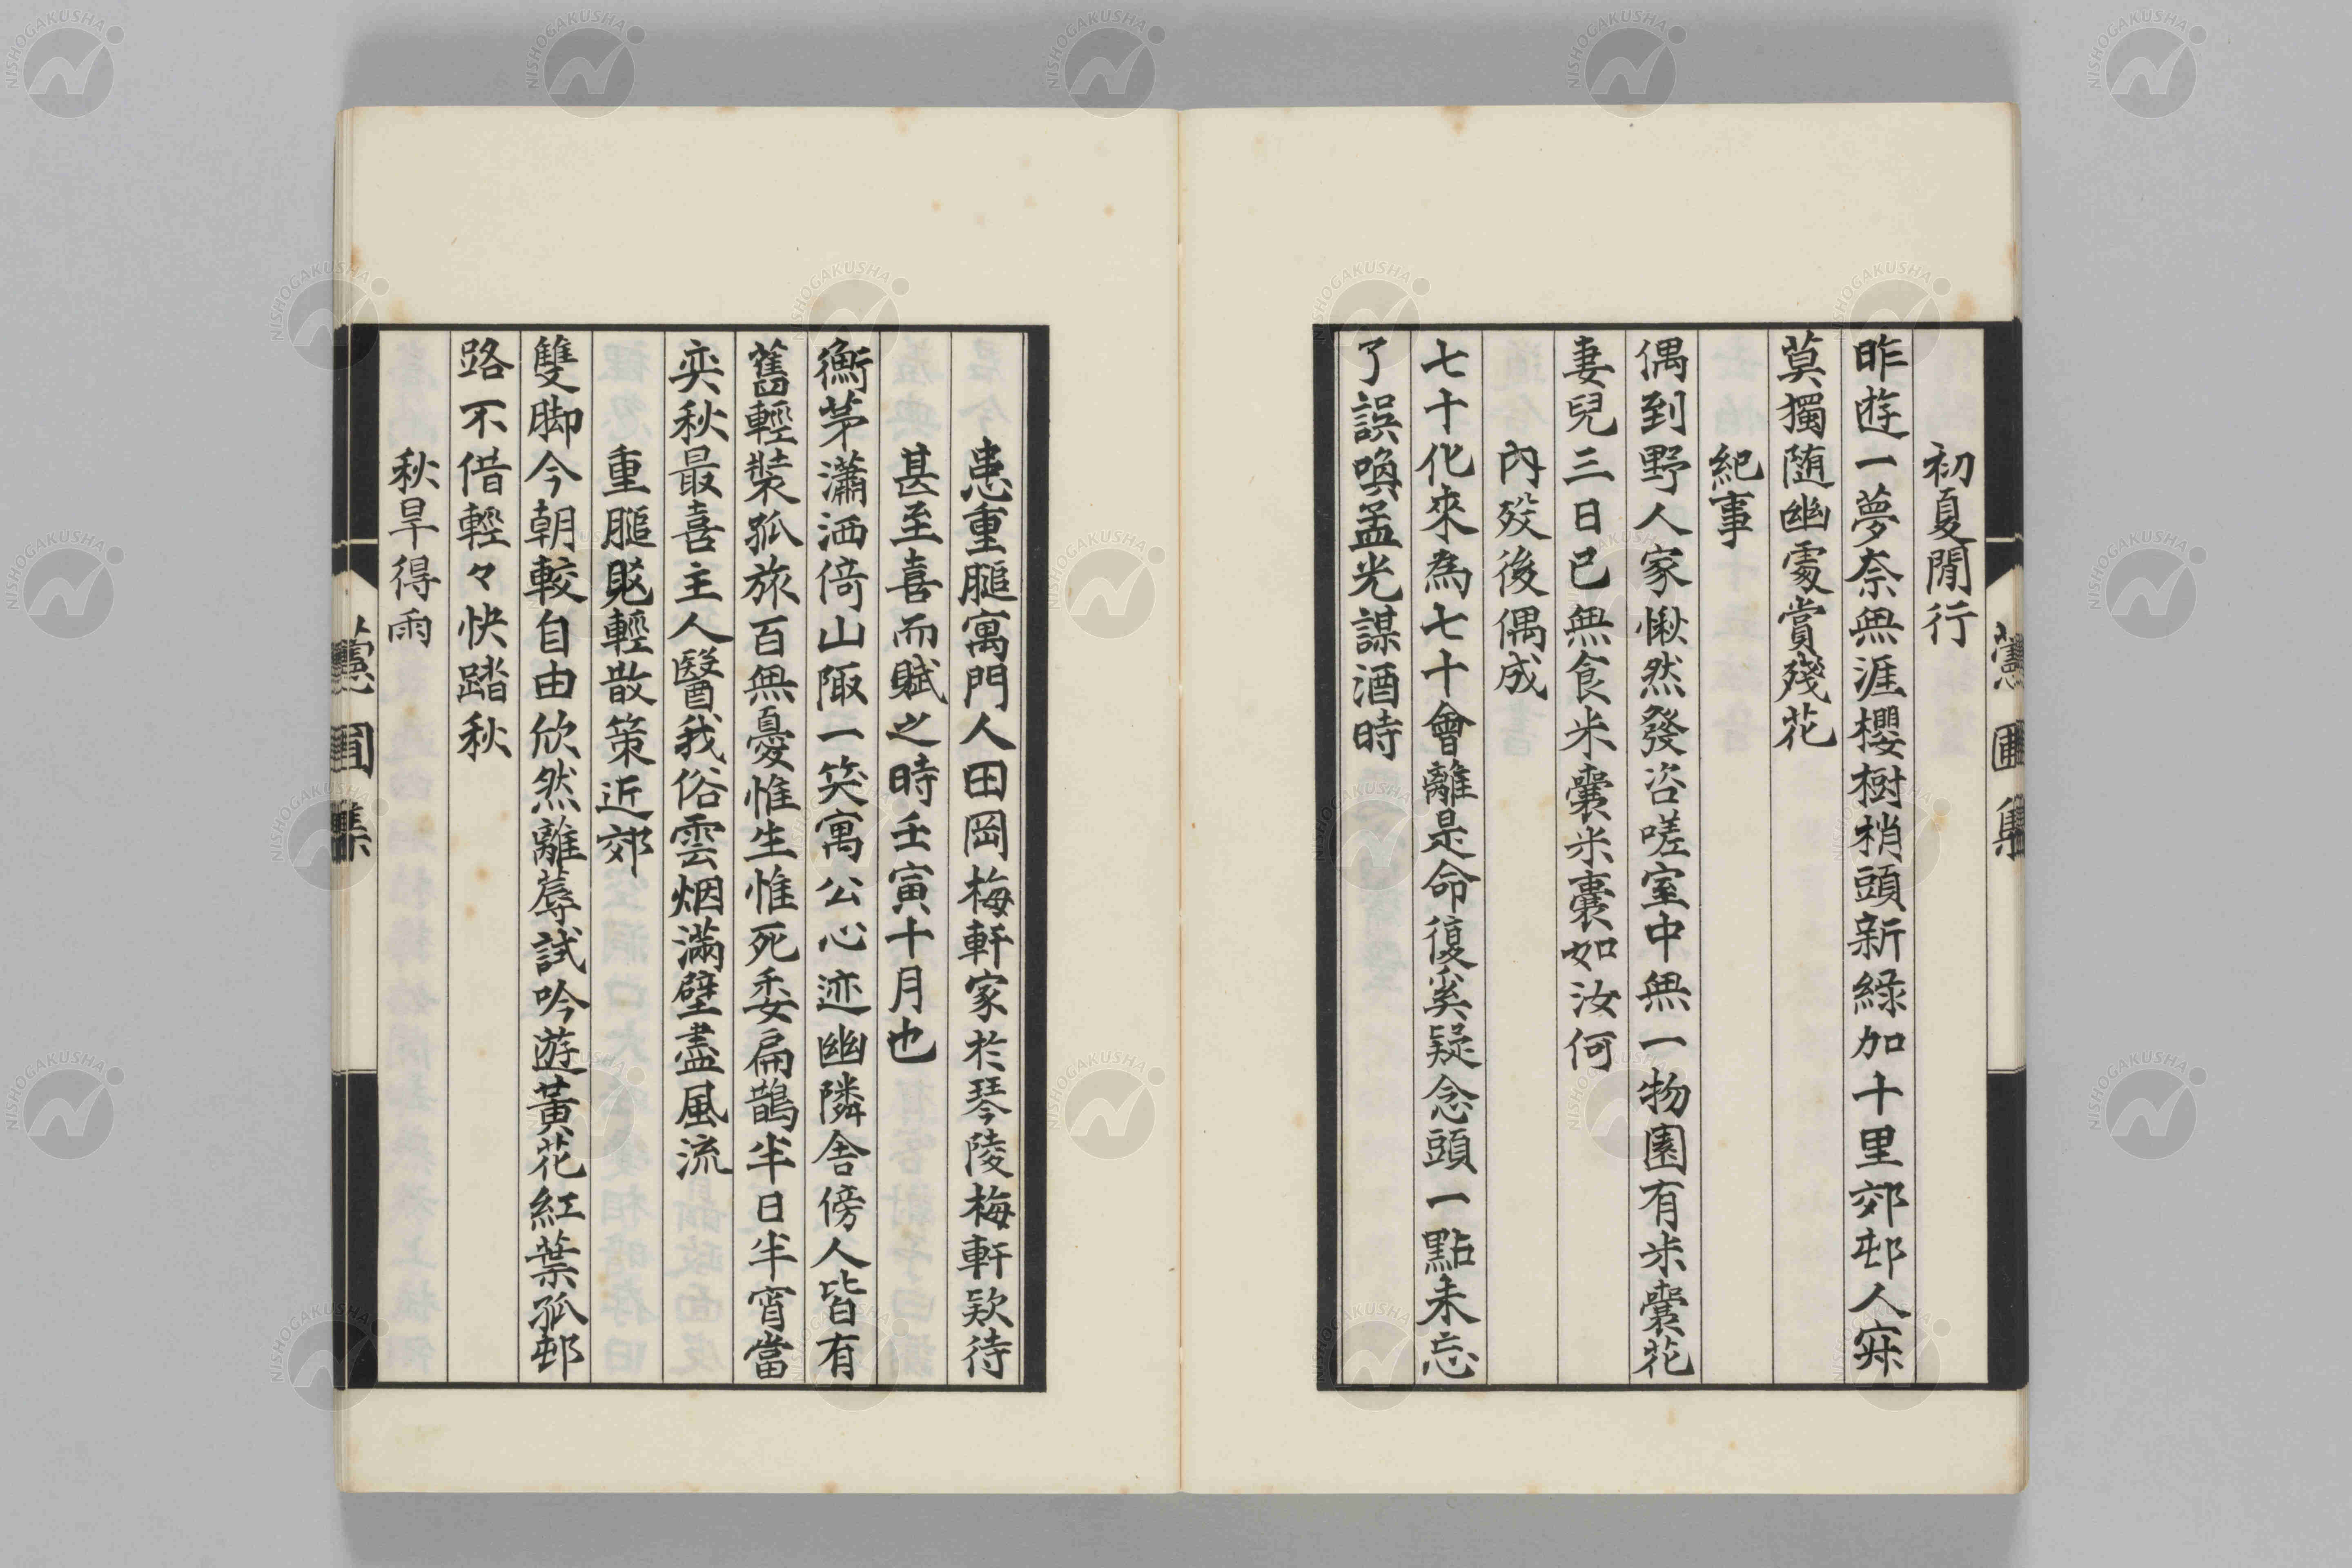 初夏閒行
昨遊一夢奈無涯櫻樹梢頭新綠加十里郊邨人寂
莫獨随幽處賞殘花
紀事
偶到野人家愀然發咨嗟室中無一物園有米囊花
妻兒三日已無食米囊米囊如汝何
內歿後偶成
七十化來為七十會離是命復奚疑念頭一點未忘
了誤喚孟光謀酒時
患重膇寓門人田岡梅軒家於琴陵梅軒欵待
甚至喜而賦之時壬寅十月也
衡茅瀟洒倚山陬一笑寓公心迹幽隣舍傍人皆有
舊輕裝孤旅百無憂惟生惟死委扁鵲半日半宵當
奕秋最喜主人醫我俗雲烟滿壁盡風流
重膇覐輕散策近郊
雙脚今朝較自由欣然離蓐試吟遊黃花紅葉孤邨
路不借輕々快踏秋
秋旱得雨
NISHOGAKUSHA